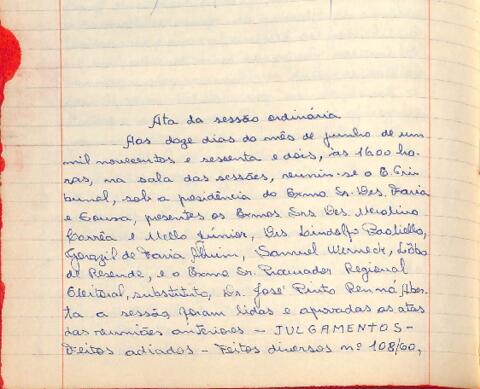 Ata da sessão ordinária
Aos doze dias do mês de junho de um
mil novecentos e sessenta e dois, às 1600 ho-
ras, na sala das sessões, reuniu-se o E. Tri
bunal, sob a presidência do Exmo Sr. Des. Faria
e Sousa, presentes os Exmos Srs Des. Merolino
Corrêa e Mello Júnior, Drs Lindolfo
de Faria Alvim, Samuel Werneck, Lôbo
de Resende, e o Exmo Sr. Procurador Regional
Eleitoral, substituto, Dr. José Pinto Rennó Aber-
ta a sessão foram lidas e aprovadas as atas
das reuniões anteriores - JULGAMENTOS -
Feitos adiados - Feitos diversos nº 108/60,